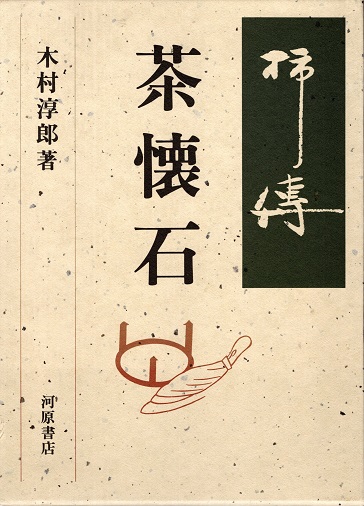 柿傳
茶懐石
木村淳郎著
河原書店